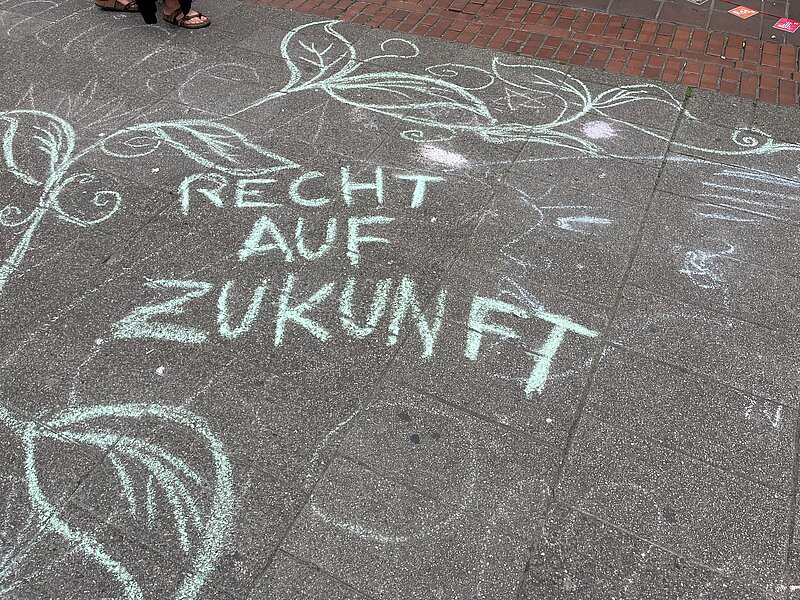 RECHT
AUF
ZUKUNFT